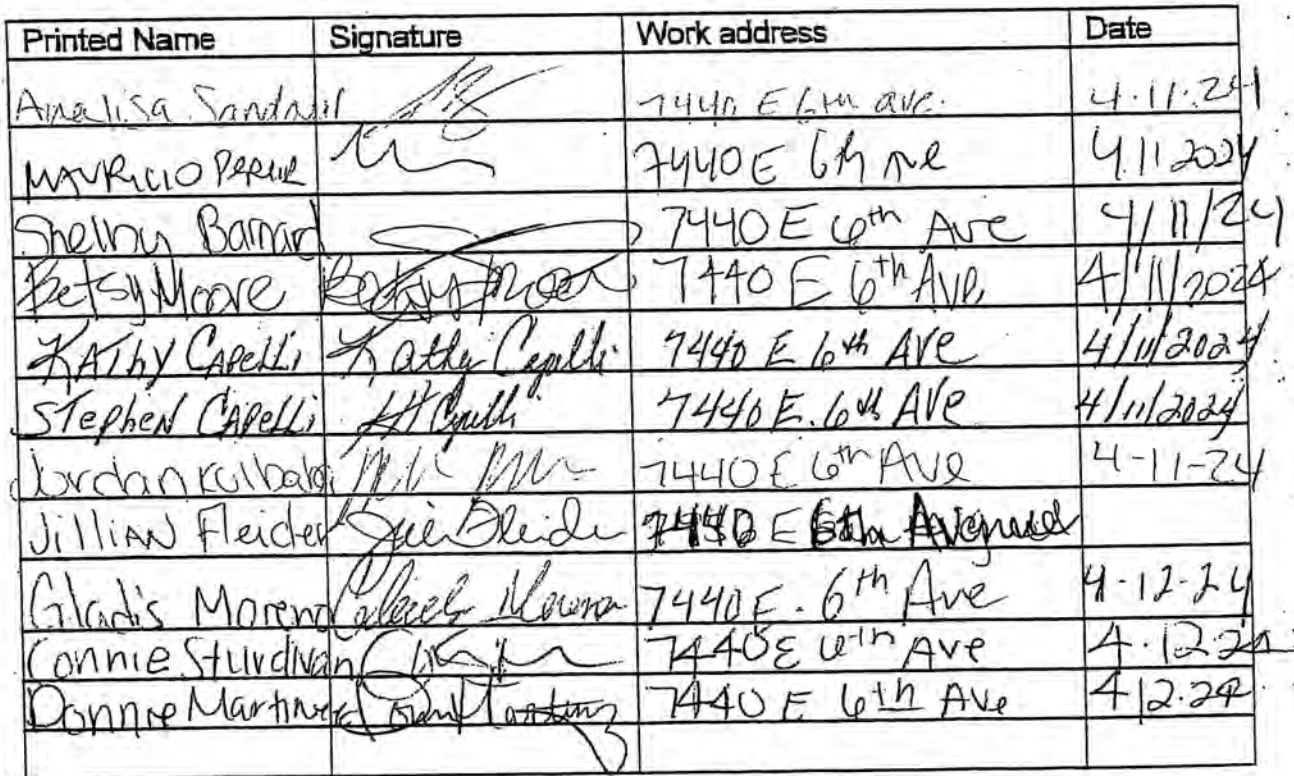 Printed Name Signature Work address Date
Analisa 7440 E 6th ave. 4.11.24
MAURICIO 7440 E 6th Ave 4 11 2024
Shelby Barnard 7440 E 6th Ave 4/11/24
Betsy Moore Betsy Moore 7440 E 6th AVE. 4/11/2024
KAThy CAPELLi Kathy Capelli 7440 E 6th AVE 4/11/2024
STephen CAPELLi 7440 E. 6th AVE 4/11/2024
Jordan 7440 E 6th AVE 4-11-24
Jillian Fleider 7440 E 6th Avenue
Gladis Moreno Gladis Moreno 7440 E. 6th Ave 4-12-24
Connie Sturdivan 7440 E 6th Ave 4.12.24
Donnie Martinez 7440 E 6th Ave 4 12.24